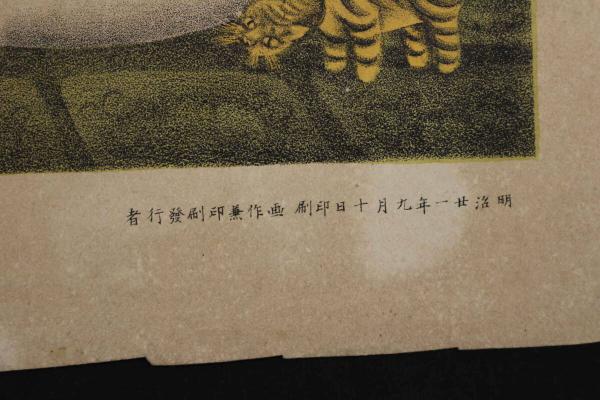 明治廿一年九月十日印刷 画作兼印刷發行者